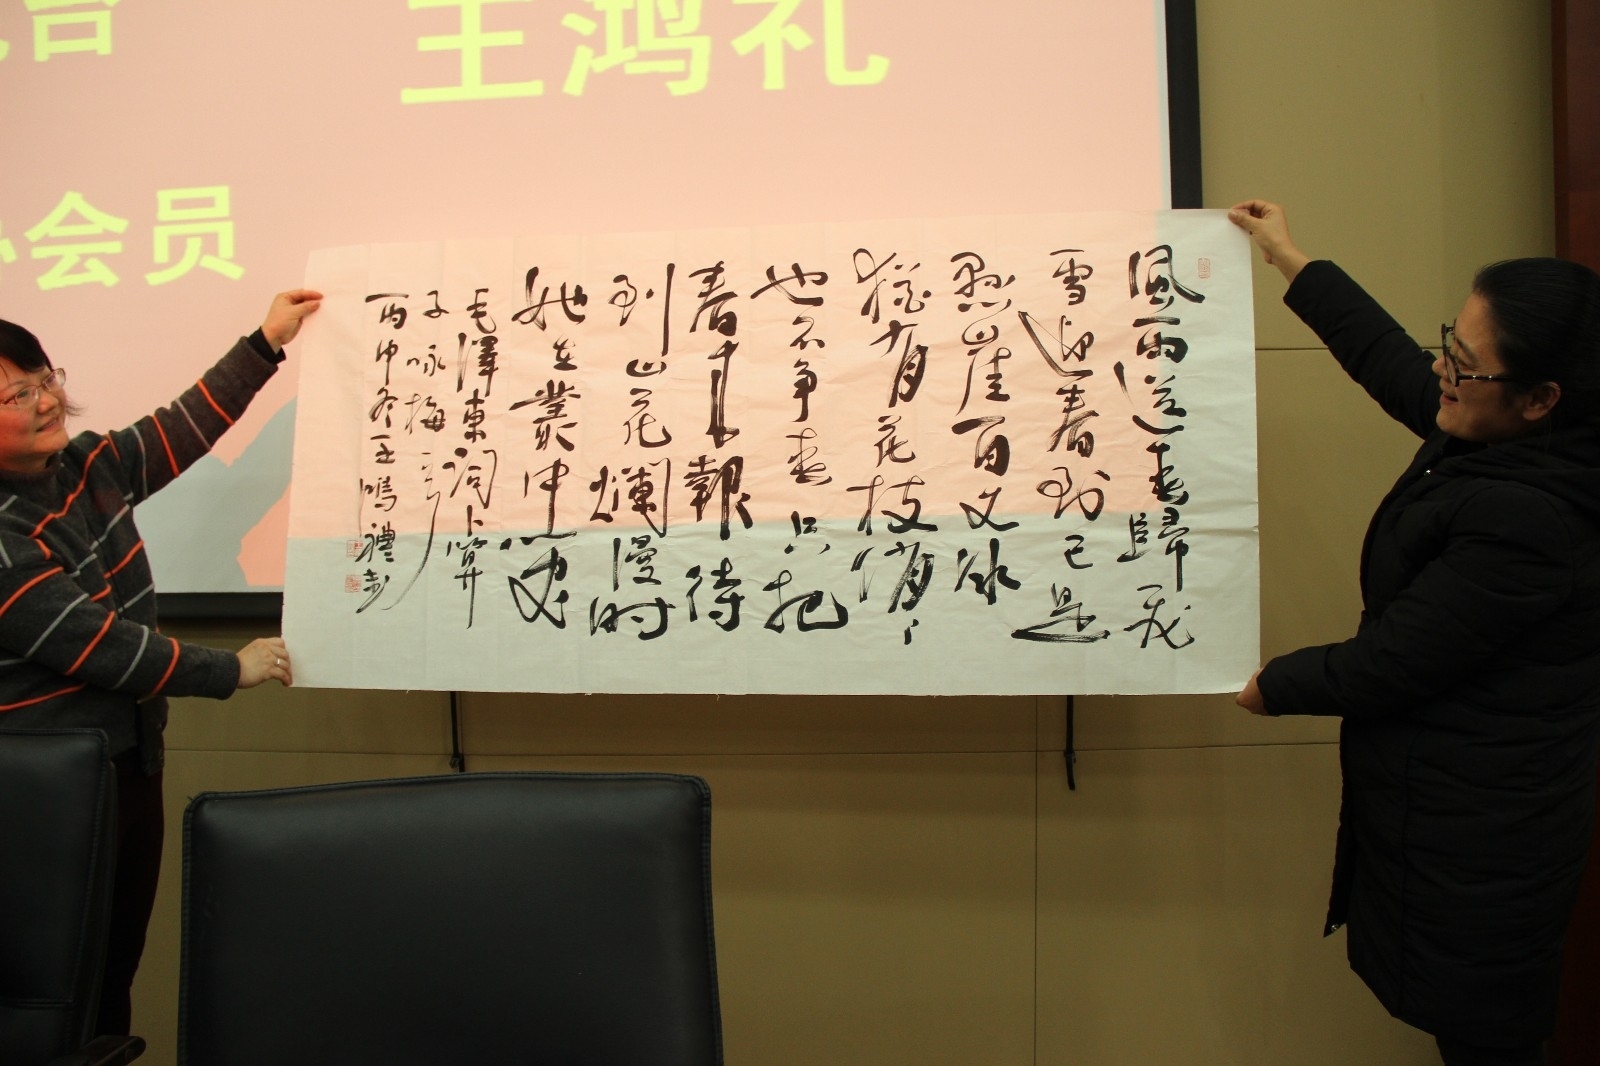 台
王鸿礼
会员
風雨送春歸飛
雪迎春到已是
懸崖百丈冰
猶有花枝俏
也不争春只把
春来報待
到山花爛漫时
她在叢中笑
毛澤東词卜算
子咏梅一首
丙申冬王鴻禮書